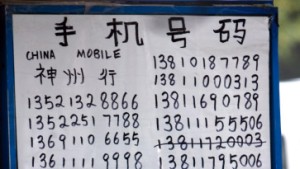 手机号码
CHINA MOBILE
神州行
13521328866
13522517788
13691106655
13611119998
13810187789
13811000313
13811690789
13811155506
13811720003
13811795006